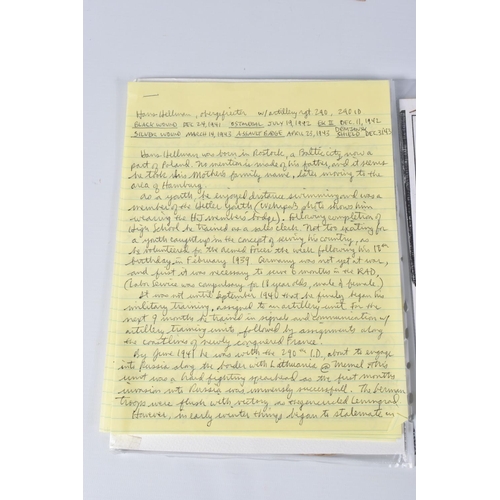 Hans Hellman, Obergefreiter w/ artillery rgt 290, 290 ID
BLACK WOUND DEC 24, 1941 OSTMEDAL JULY 19, 1942 EK II DEC 11, 1942
SILVER WOUND MARCH 19, 1943 ASSAULT BADGE APRIL 23, 1943 DEMJANSK SHIELD DEC 31/43
Hans Hellman was born in Rostock, a Baltic city now a
part of Poland. No mention is made of his father, and it seems
he took his Mothers family name, later moving to the
area of Hamburg.
As a youth, he enjoyed distance swimming and was a
member of the Hitler Youth ( photo shows him
wearing the HJ members badge). Following completion of
High School he trained as a sales clerk. Not too exciting for
a youth caught up in the concept of serving his country, as
he volunteered for the Armed forces the week following his 18th
birthday, in February 1939. Germany was not yet at war,
and first it was necessary to serve 6 months in the RAD,
(Labor Service was compulsory for 18 year olds, male & female).
It was not until September 1940 that he finally began his
military training, assigned to an artillery unit. For the
next 9 months he trained in signals and communication w/
artillery training units followed by assignments along
the coastlines of newly conquered France.
By June 1941 he was with the 290th I.D. about to engage
into Russia along the border with Lithuania @ Memel. This
unit was a hard fighting spearhead as the first months
invasion into Russia was immensely successful. The German
troops were flush with victory, as they encircled Leningrad
However, in early winter things began to stalemate in